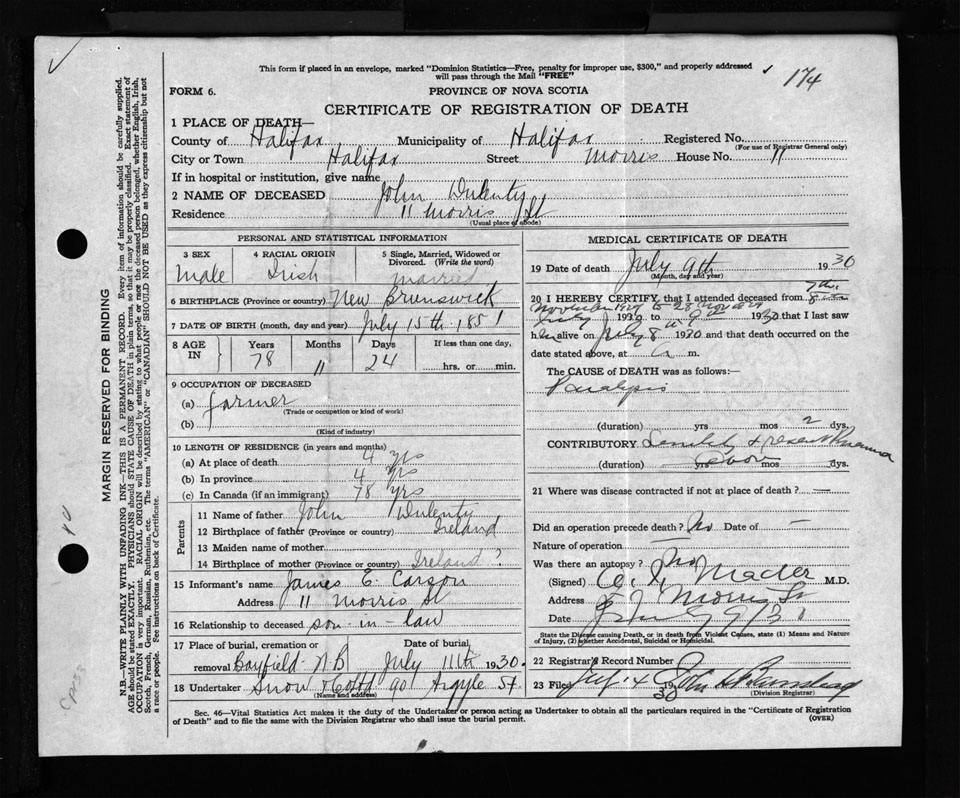 This form if placed in an envelope, marked "Dominion Statistics—Free, penalty for improper use, $300," and properly addressed
will pass through the Mail "FREE"
174
FORM 6.
PROVINCE OF NOVA SCOTIA
CERTIFICATE OF REGISTRATION OF DEATH
1 PLACE OF DEATH—
County of Halifax Municipality of Halifax Registered No.
(For use of Registrar General only)
City or Town Halifax Street Morris House No. 11
If in hospital or institution, give name
2 NAME OF DECEASED John Dulenty
Residence 11 Morris St
(Usual place of abode)
PERSONAL AND STATISTICAL INFORMATION
3 SEX Male
4 RACIAL ORIGIN Irish
5 Single, Married, Widowed or Divorced. (Write the word) Married
6 BIRTHPLACE (Province or country) New Brunswick
7 DATE OF BIRTH (month, day and year) July 15th 1851
8 AGE IN Years 78 Months 11 Days 24 If less than one day, hrs. or min.
9 OCCUPATION OF DECEASED
(a) farmer
(Trade or occupation or kind of work)
(b)
(Kind of industry)
10 LENGTH OF RESIDENCE (in years and months)
(a) At place of death 4 yrs
(b) In province 4 yrs
(c) In Canada (if an immigrant) 78 yrs
Parents
11 Name of father John Dulenty
12 Birthplace of father (Province or country) Ireland
13 Maiden name of mother
14 Birthplace of mother (Province or country) Ireland ?
15 Informant's name James E. Carson
Address 11 Morris St
16 Relationship to deceased son-in-law
17 Place of burial, cremation or removal Bayfield N B Date of burial, July 11th 1930
18 Undertaker Snow & Co 90 Argyle St.
(Name and address)
MEDICAL CERTIFICATE OF DEATH
19 Date of death July 9th 1930
(Month, day and year)
20 I HEREBY CERTIFY, that I attended deceased from 7th
November 1929 to 28 Nov 1929
July 1930 to 9th 1930 that I last saw
him alive on July 8th 1930 and that death occurred on the
date stated above, at a m.
The CAUSE of DEATH was as follows:—
Paralysis
(duration) yrs mos 2 dys.
CONTRIBUTORY Senility
(duration) yrs mos dys.
21 Where was disease contracted if not at place of death? —
Did an operation precede death? No Date of —
Nature of operation —
Was there an autopsy? No
(Signed) Mader M.D.
Address Morris St
Date
State the Disease causing Death, or in death from Violent Causes, state (1) Means and
Nature of Injury, (2) whether Accidental, Suicidal or Homicidal.
22 Registrar's Record Number
23 Filed July 14 30 John
(Division Registrar)
Sec. 46—Vital Statistics Act makes it the duty of the Undertaker or person acting as Undertaker to obtain all the particulars required in the "Certificate of Registration
of Death" and to file the same with the Division Registrar who shall issue the burial permit.
(OVER)
MARGIN RESERVED FOR BINDING
N.B.—WRITE PLAINLY WITH UNFADING INK—THIS IS A PERMANENT RECORD. Every item of information should be carefully supplied.
AGE should be stated EXACTLY. PHYSICIANS should state CAUSE OF DEATH in plain terms so that it may be properly classified. Exact statement of
OCCUPATION is very important. RACIAL ORIGIN will be described by stating to what people or race the deceased person belonged, whether English, Irish,
Scotch, French, German, Russian, Ruthenian, etc. The terms "AMERICAN" or "CANADIAN" SHOULD NOT BE USED as they express citizenship but not
a race or people. See instructions on back of Certificate.